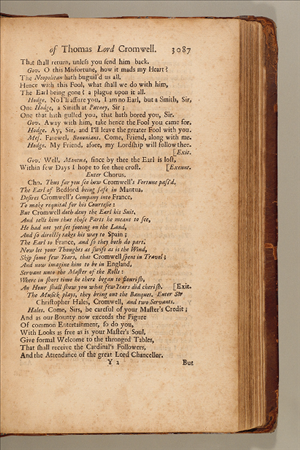 of Thomas Lord Cromwell. 3087
That shall return, unless you send him back.
Gov. O this Misfortune, how it mads my Heart!
The Neapolitan hath beguil'd us all.
Hence with this Fool, what shall we do with him,
The Earl being gone? a plague upon it all.
Hodge. No I'll assure you, I am no Earl, but a Smith, Sir,
One Hodge, a Smith at Putney, Sir;
One that hath gulled you, that hath bored you, Sir.
Gov. Away with him, take hence the Fool you came for.
Hodge. Ay, Sir, and I'll leave the greater Fool with you.
Mes. Farewel, Bononians. Come, Friend, along with me.
Hodge. My Friend, afore, my Lordship will follow thee.
[Exit.
Gov. Well, Mantua, since by thee the Earl is lost,
Within few Days I hope to see thee crost. [Exeunt.
Enter Chorus.
Cho. Thus far you see how Cromwell's Fortune pass'd.
The Earl of Bedford being safe in Mantua,
Desires Cromwell's Company into France,
To make requital for his Courtesie:
But Cromwell doth deny the Earl his Suit,
And tells him that those Parts he meant to see,
He had not yet set footing on the Land,
And so directly takes his way to Spain;
The Earl to France, and so they both do part.
Now let your Thoughts as swift as is the Wind,
Skip some few Years, that Cromwell spent in Travel;
And now imagine him to be in England,
Servant unto the Master of the Rolls:
Where in short time he there began to flourish,
An Hour shall show you what few Years did cherish. [Exit.
The Musick plays, they bring out the Banquet. Enter Sir
Christopher Hales, Cromwell, and two Servants.
Hales. Come, Sirs, be careful of your Master's Credit;
And as our Bounty now exceeds the Figure
Of common Entertainment, so do you,
With Looks as free as is your Master's Soul,
Give formal Welcome to the thronged Tables,
That shall receive the Cardinal's Followers,
And the Attendance of the great Lord Chancellor.
Y 2 But